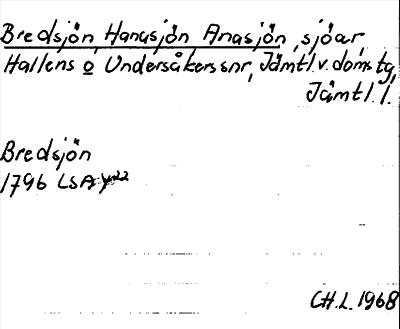 Bredsjön, Hanasjön, Anasjön, sjöar,
Hallens o Undersåkers snr, Jämtl. v. doms tg,
Jämtl. l.
Bredsjön
1796 LSA
CH.L. 1968